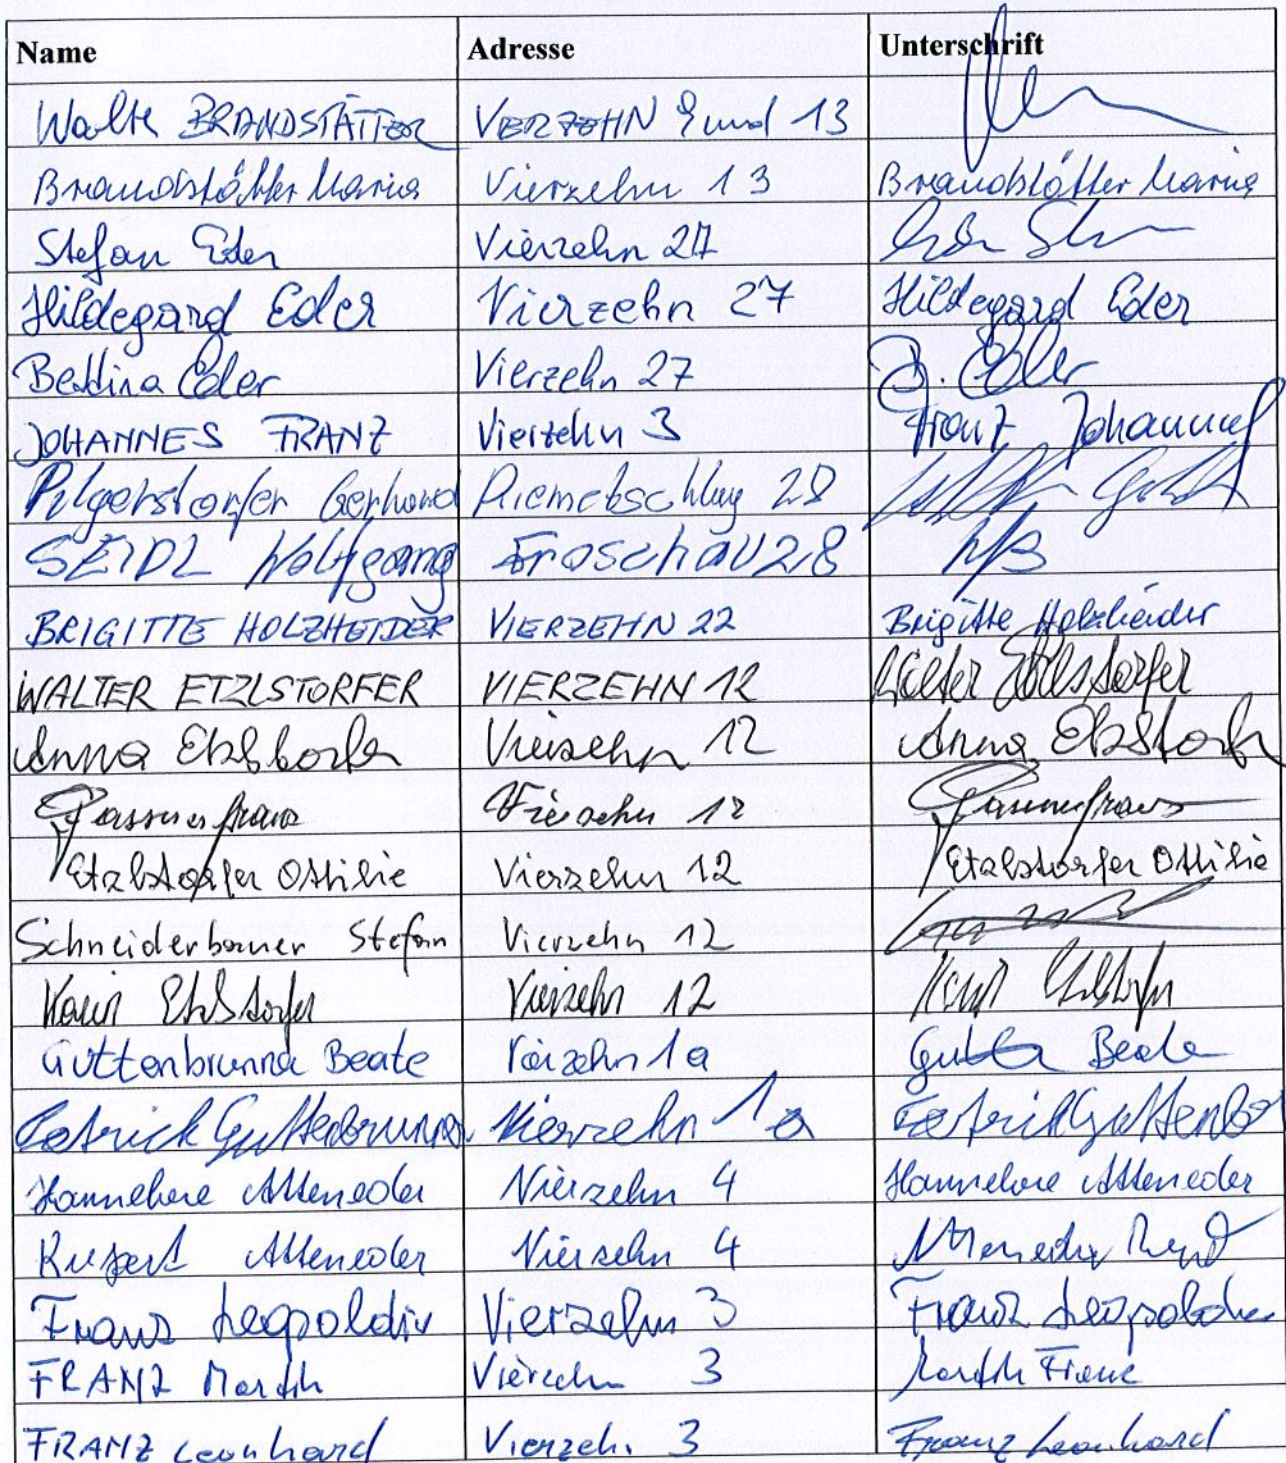 Name Adresse Unterschrift
Walter BRANDSTÄTTER VIERZEHN 9 und 13
Brandstätter Maria Vierzehn 13 Brandstätter Maria
Stefan Eder Vierzehn 27
Hildegard Eder Vierzehn 27 Hildegard Eder
Bettina Eder Vierzehn 27 B. Eder
JOHANNES FRANZ Vierzehn 3 Franz Johannes
Pilgerstorfer Gerhard Riemetschlag 28
SEIDL Wolfgang Froschau 28
BRIGITTE HOLZHEIDER VIERZEHN 22 Brigitte Holzheider
WALTER ETZLSTORFER VIERZEHN 12 Walter Etzlstorfer
Anna Etzlstorfer Vierzehn 12 Anna Etzlstorfer
Franz Vierzehn 12
Etzlstorfer Ottilie Vierzehn 12 Etzlstorfer Ottilie
Schneiderbauer Stefan Vierzehn 12
Etzlstorfer Vierzehn 12 Etzlstorfer
Guttenbrunner Beate Vierzehn 1a Beate
Patrick Guttenbrunner Vierzehn 1a Patrick Guttenbr
Hannelore Atteneder Vierzehn 4 Hannelore Atteneder
Rupert Atteneder Vierzehn 4 Atteneder Rupert
Franz Leopoldine Vierzehn 3 Franz Leopoldine
FRANZ Martin Vierzehn 3 Martin Franz
FRANZ Leonhard Vierzehn 3 Franz Leonhard